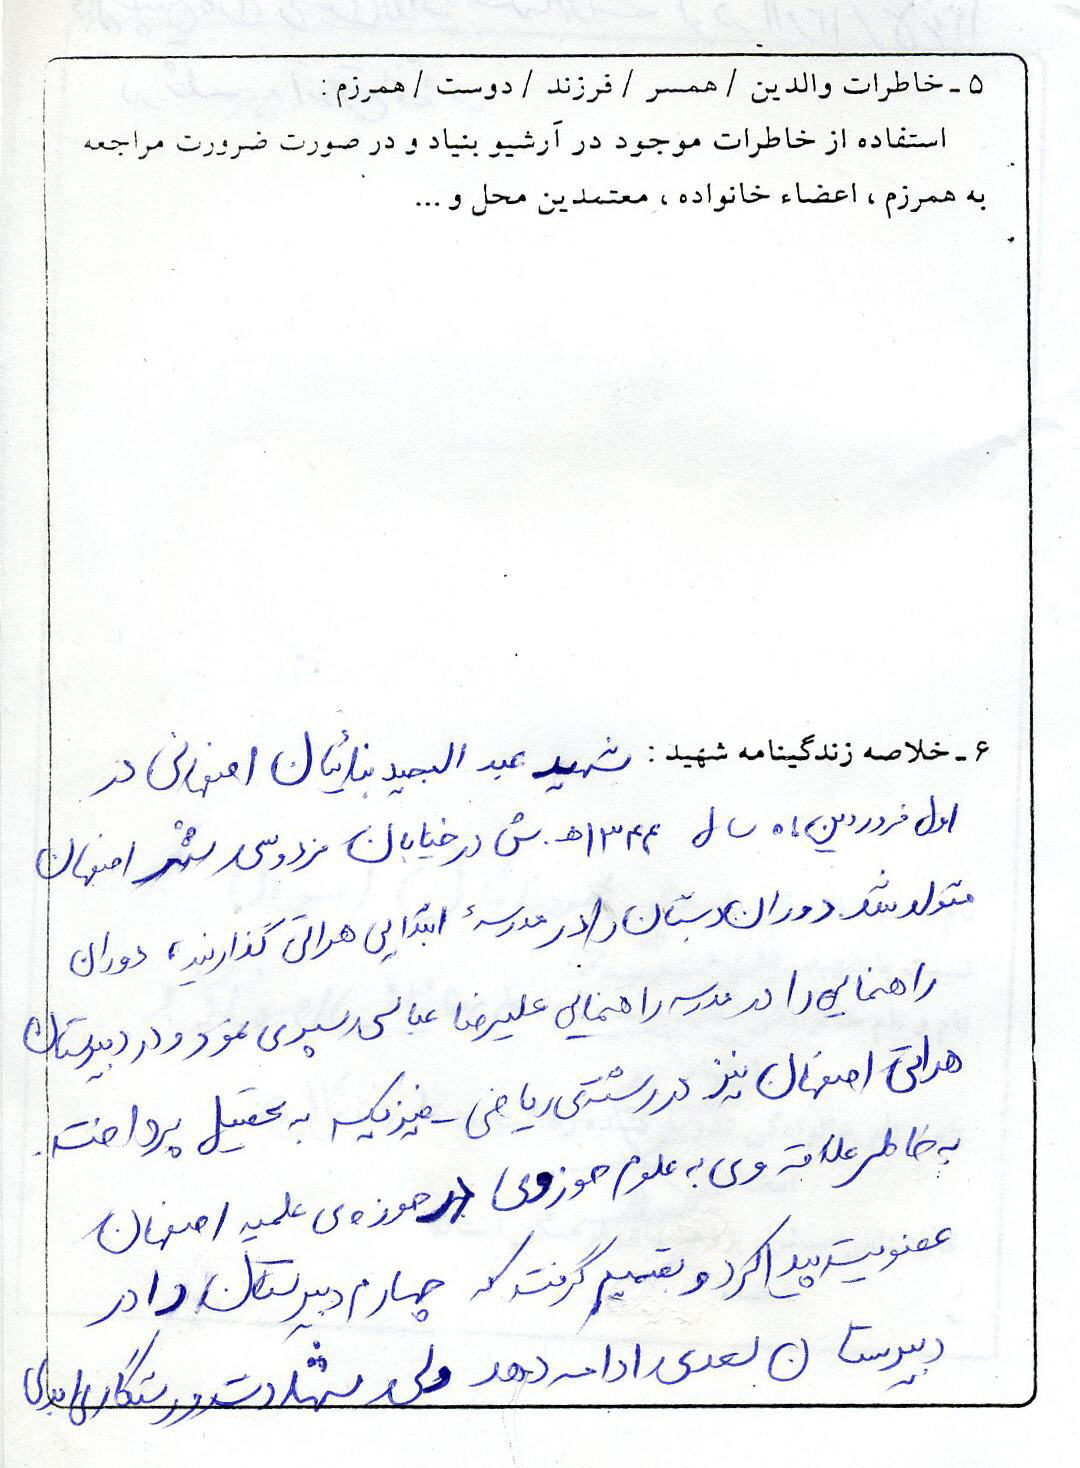 ۵ ـ خاطرات والدین / همسر / فرزند / دوست / همرزم :
استفاده از خاطرات موجود در آرشیو بنیاد و در صورت ضرورت مراجعه
به همرزم ، اعضاء خانواده ، معتمدین محل و ...
۶ ـ خلاصه زندگینامه شهید : شهید عبد المجید بنائیان اصفهانی در
اول فروردین ماه سال ۱۳۴۴ ه. ش در خیابان فردوسی شهر اصفهان
متولد شد دوران دبستان را در مدرسهٔ ابتدایی هراتی گذارنید، دوران
راهنمایی را در مدرسه راهنمایی علیرضا عباسی سپری نمود و در دبیرستان
هراتی اصفهان نیز در رشته‌ی ریاضی ـ فیزیک به تحصیل پرداخت.
به خاطر علاقه وی به علوم حوزوی در حوزه‌ی علمیه اصفهان
عضویت پیدا کرد و تصمیم گرفت که چهارم دبیرستان را در
دبیرستان سعدی ادامه دهد ولی شهادت و رستگاری ابدی